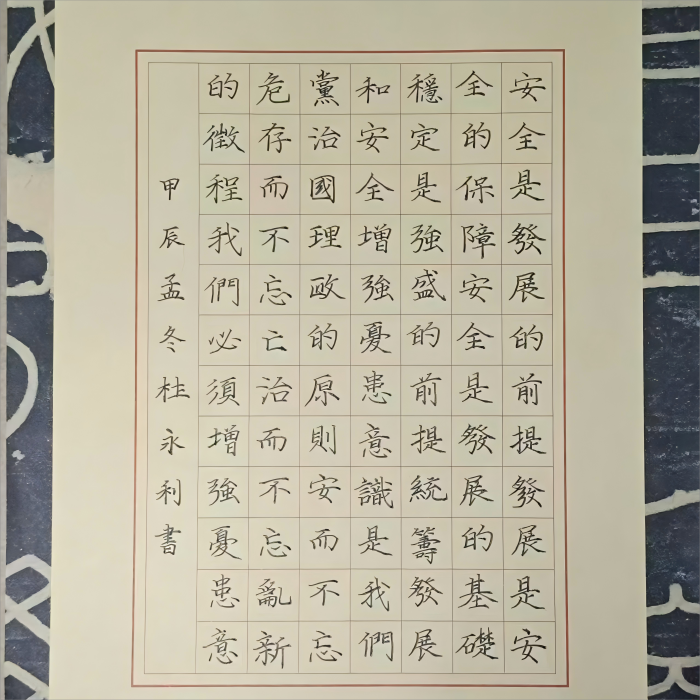 安全是發展的前提發展是安
全的保障安全是發展的基礎
穩定是強盛的前提統籌發展
和安全增強憂患意識是我們
黨治國理政的原則安而不忘
危存而不忘亡治而不忘亂新
的徵程我們必須增強憂患意
甲辰孟冬杜永利書